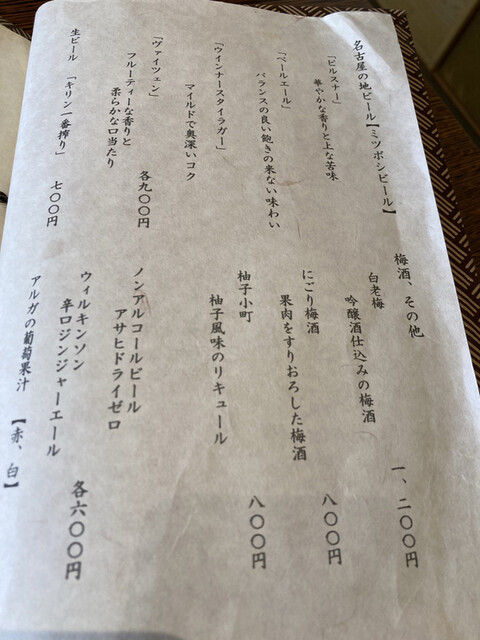 名古屋の地ビール【ミツボシビール】
「ピルスナー」
華やかな香りと上な苦味
「ペールエール」
バランスの良い飽きの来ない味わい
「ウインナースタイラガー」
マイルドで奥深いコク
「ヴァイツェン」
フルーティーな香りと
柔らかな口当たり
各九〇〇円
生ビール 「キリン一番搾り」 七〇〇円
梅酒、その他
白老梅
吟醸酒仕込みの梅酒
一、二〇〇円
にごり梅酒
果肉をすりおろした梅酒
八〇〇円
柚子小町
柚子風味のリキュール
八〇〇円
ノンアルコールビール
アサヒドライゼロ
ウィルキンソン
辛口ジンジャーエール
アルガの葡萄果汁 【赤、白】
各六〇〇円